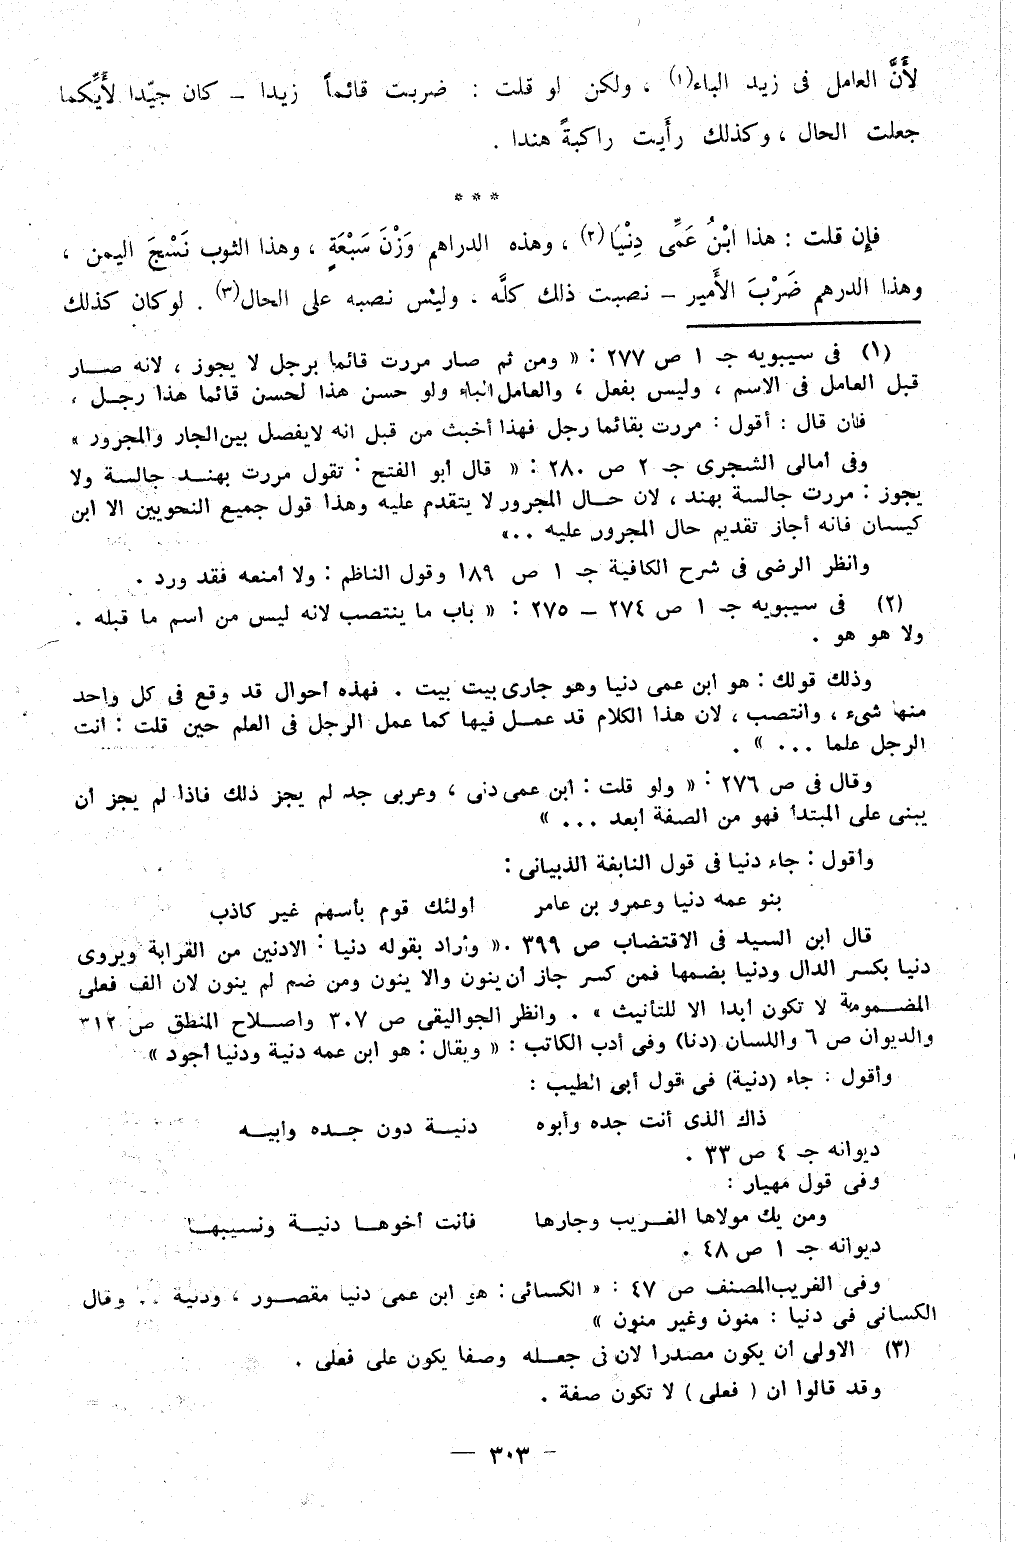 لأَنَّ العامل فى زيد الباء(١) ، ولكن لو قلت : ضربت قائماً زيدا – كان جيّدا لأَيِّكما
جعلت الحال ، وكذلك رأَيت راكبةً هندا .
* * *
فإِن قلت : هذا ابْنُ عَمِّى دِنْيَا(٢) ، وهذه الدراهم وَزْنَ سَبْعَةٍ ، وهذا الثوب نَسْجَ اليمن ،
وهذا الدرهم ضَرْبَ الأَمير – نصبت ذلك كلَّه . وليْس نصبه على الحال(٣) . لو كان كذلك
(١) فى سيبويه جـ ١ ص ٢٧٧ : « ومن ثم صار مررت قائما برجل لا يجوز ، لانه صار
قبل العامل فى الاسم ، وليس بفعل ، والعامل الباء ولو حسن هذا لحسن قائما هذا رجل ،
فان قال : أقول : مررت بقائما رجل فهذا أخبث من قبل انه لايفصل بين الجار والمجرور »
وفى أمالى الشجرى جـ ٢ ص ٢٨٠ : « قال أبو الفتح : تقول مررت بهند جالسة ولا
يجوز : مررت جالسة بهند ، لان حال المجرور لا يتقدم عليه وهذا قول جميع النحويين الا ابن
كيسان فانه أجاز تقديم حال المجرور عليه ..»
وانظر الرضى فى شرح الكافية جـ ١ ص ١٨٩ وقول الناظم : ولا أمنعه فقد ورد .
(٢) فى سيبويه جـ ١ ص ٢٧٤ – ٢٧٥ : « باب ما ينتصب لانه ليس من اسم ما قبله .
ولا هو هو .
وذلك قولك : هو ابن عمى دنيا وهو جارى بيت بيت . فهذه أحوال قد وقع فى كل واحد
منها شىء ، وانتصب ، لان هذا الكلام قد عمل فيها كما عمل الرجل فى العلم حين قلت : أنت
الرجل علما ... » .
وقال فى ص ٢٧٦ : « ولو قلت : ابن عمى دنى ، وعربى جد لم يجز ذلك فاذا لم يجز أن
يبنى على المبتدأ فهو من الصفة أبعد ... »
وأقول : جاء دنيا فى قول النابغة الذبيانى :
بنو عمه دنيا وعمرو بن عامر أولئك قوم بأسهم غير كاذب
قال ابن السيد فى الاقتضاب ص ٣٩٩ .« وأراد بقوله دنيا : الادنين من القرابة ويروى
دنيا بكسر الدال ودنيا بضمها فمن كسر جاز أن ينون والا ينون ومن ضم لم ينون لان الف فعلى
المضمومة لا تكون أبدا الا للتأنيث » . وانظر الجواليقى ص ٣٠٧ واصلاح المنطق ص ٣١٢
والديوان ص ٦ واللسان (دنا) وفى أدب الكاتب : « ويقال : هو ابن عمه دنية ودنيا أجود »
وأقول : جاء (دنية) فى قول أبى الطيب :
ذاك الذى أنت جده وأبوه دنية دون جده وأبيه
ديوانه جـ ٤ ص ٣٣ .
وفى قول مهيار :
ومن يك مولاها الغريب وجارها فأنت أخوها دنية ونسيبها
ديوانه جـ ١ ص ٤٨ .
وفى الغريب المصنف ص ٤٧ : « الكسائى : هو ابن عمى دنيا مقصور ، ودنية .. وقال
الكسائى فى دنيا : منون وغير منون »
(٣) الاولى أن يكون مصدرا لان فى جعله وصفا يكون على فعلى .
وقد قالوا ان ( فعلى ) لا تكون صفة .
– ٣٠٣ –